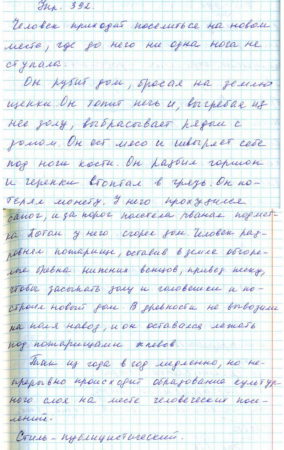 Упр. 392.
Человек приходит поселиться на новом
место, где до него ни одна нога не
ступала.
Он рубит дом, бросая на землю
щепки. Он топит печь и, выгребая из
нее золу, выбрасывает рядом с
домом. Он ест мясо и швыряет себе
под ноги кости. Он разбил горшок
и черепки втоптал в грязь. Он по-
терял монету. У него прохудился
сапог, и за порог полетела рваная подмет-
ка. Потом у него сгорел дом. Человек раз-
ровнял пожарище, оставив в земле обгоре-
лые бревна нижних венцов, привез песку,
чтобы засыпать золу и головешки и по-
строил новый дом. В древности не вывозили
на поля навоз, и он оставался лежать
под пожарищами хлевов.
Так из года в год медленно, но не-
прерывно происходит образование культур-
ного слоя на месте человеческих посе-
лений.
Стиль - публицистический.